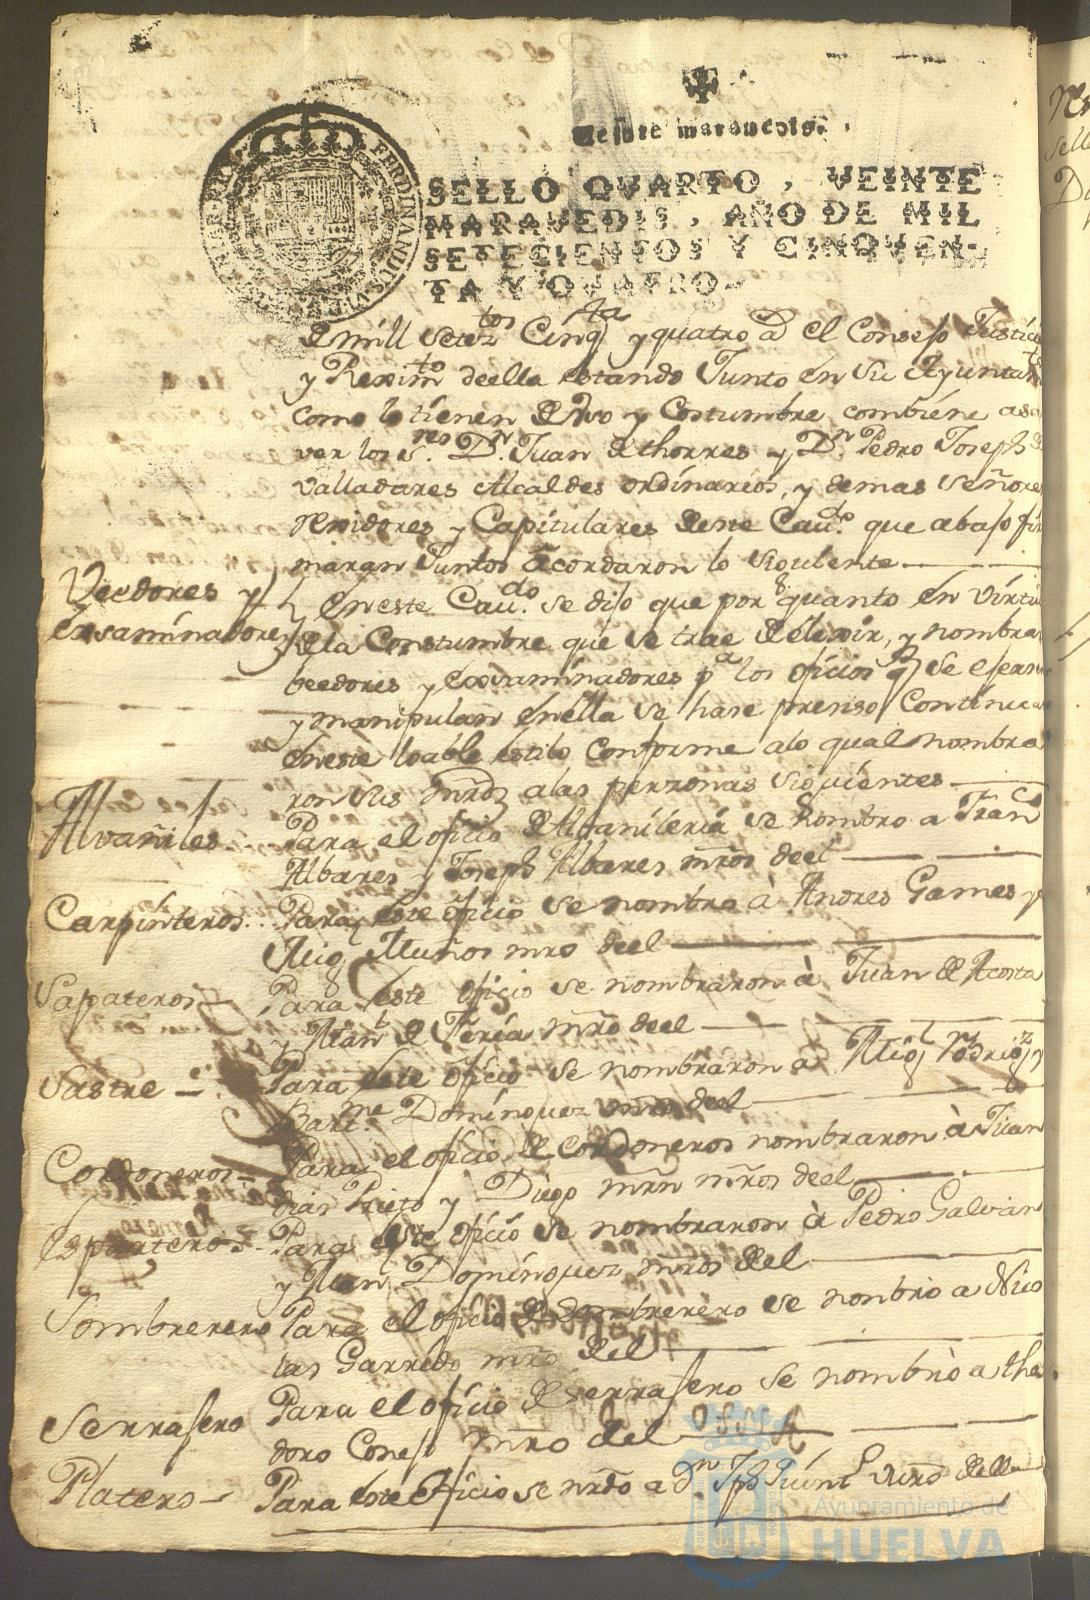 veinte maravedis.
SELLO QVARTO, VEINTE
MARAVEDIS, AÑO DE MIL
SETECIENTOS Y CINQVEN-
TA Y QVATRO.
FERDINANDUS VI D.G.
de mill setez.tos Cinq.ta y quatro a.s el Consejo Justicia
y Rexim.to deella estando Junto en su Ayuntam.to
como lo tienen de uso y Costumbre combiene a sa
ver los s.res D.n Juan de thorres y D.n Pedro Joseph de
valladares Alcaldes ordinarios, y demas señores
rexidores y Capitulares deeste Cau.do que abajo fir
maran Juntos acordaron lo siguiente
Veedores y
Exsaminadores
En este Cau.do se dijo que por quanto en virtud
de la Constumbre que se trae de elexir, y nombrar
beedores y exsaminadores p.a los oficios q.e se ejersen
y manipulan en ella se hase presiso Continuar
en este loable estilo Conforme alo qual nombra
ron sus mrds alas perzonas siguientes
Alvañiles
Para el oficio de Albanileria se nombro a Fran.co
Albares y Joseph Albares mros deel
Carpinteros
Para este oficio se nombro à Andres Games y
Mig.l Muños mro deel
Sapateros
Para este oficio se nombraron à Juan de Acosta
y Man.l de Feria mro deel
Sastre
Para este oficio se nombraron a Mig.l Rodrig.z y
Bart.me Dominguez mros deel
Cordoneros
Para el oficio de cordoneros nombraron à Juan
dias Prieto y Diego mrn mros deel
Esparteros
Para este oficio se nombraron à Pedro Galvan
y Man.l Dominguez mros del
Sombrerero
Para el oficio de sombrerero se nonbrò a Nico
las Garrido mro del
Serrajero
Para el oficio de serrajero se nombrò a theo
doro Conejo mro del
Platero
Para este Oficio se nrdo a D.n Jph mro dell
Ayuntamiento de
HUELVA